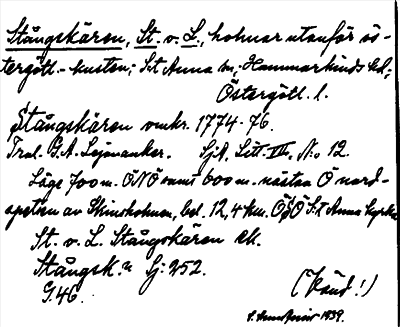 Stångskären, St. v. L., holmar utanför ös-
tergötl.-kusten; S:t Anna sn, Hammarkinds hd;
Östergötl. l.
Stångskären omkr. 1774-76.
Trol. G.A. Lejonanker. SjA, Litt. III, No 12.
Läge 700 m. ÖNÖ samt 600 m. nästan Ö nord-
spetsen av holmen, bel. 12,4 km. ÖSÖ S:t Anna kyrka
St. v. L. Stångskären Ek.
Stångsk.n Sj: 252.
G. 46.
(Känd!)
1939.